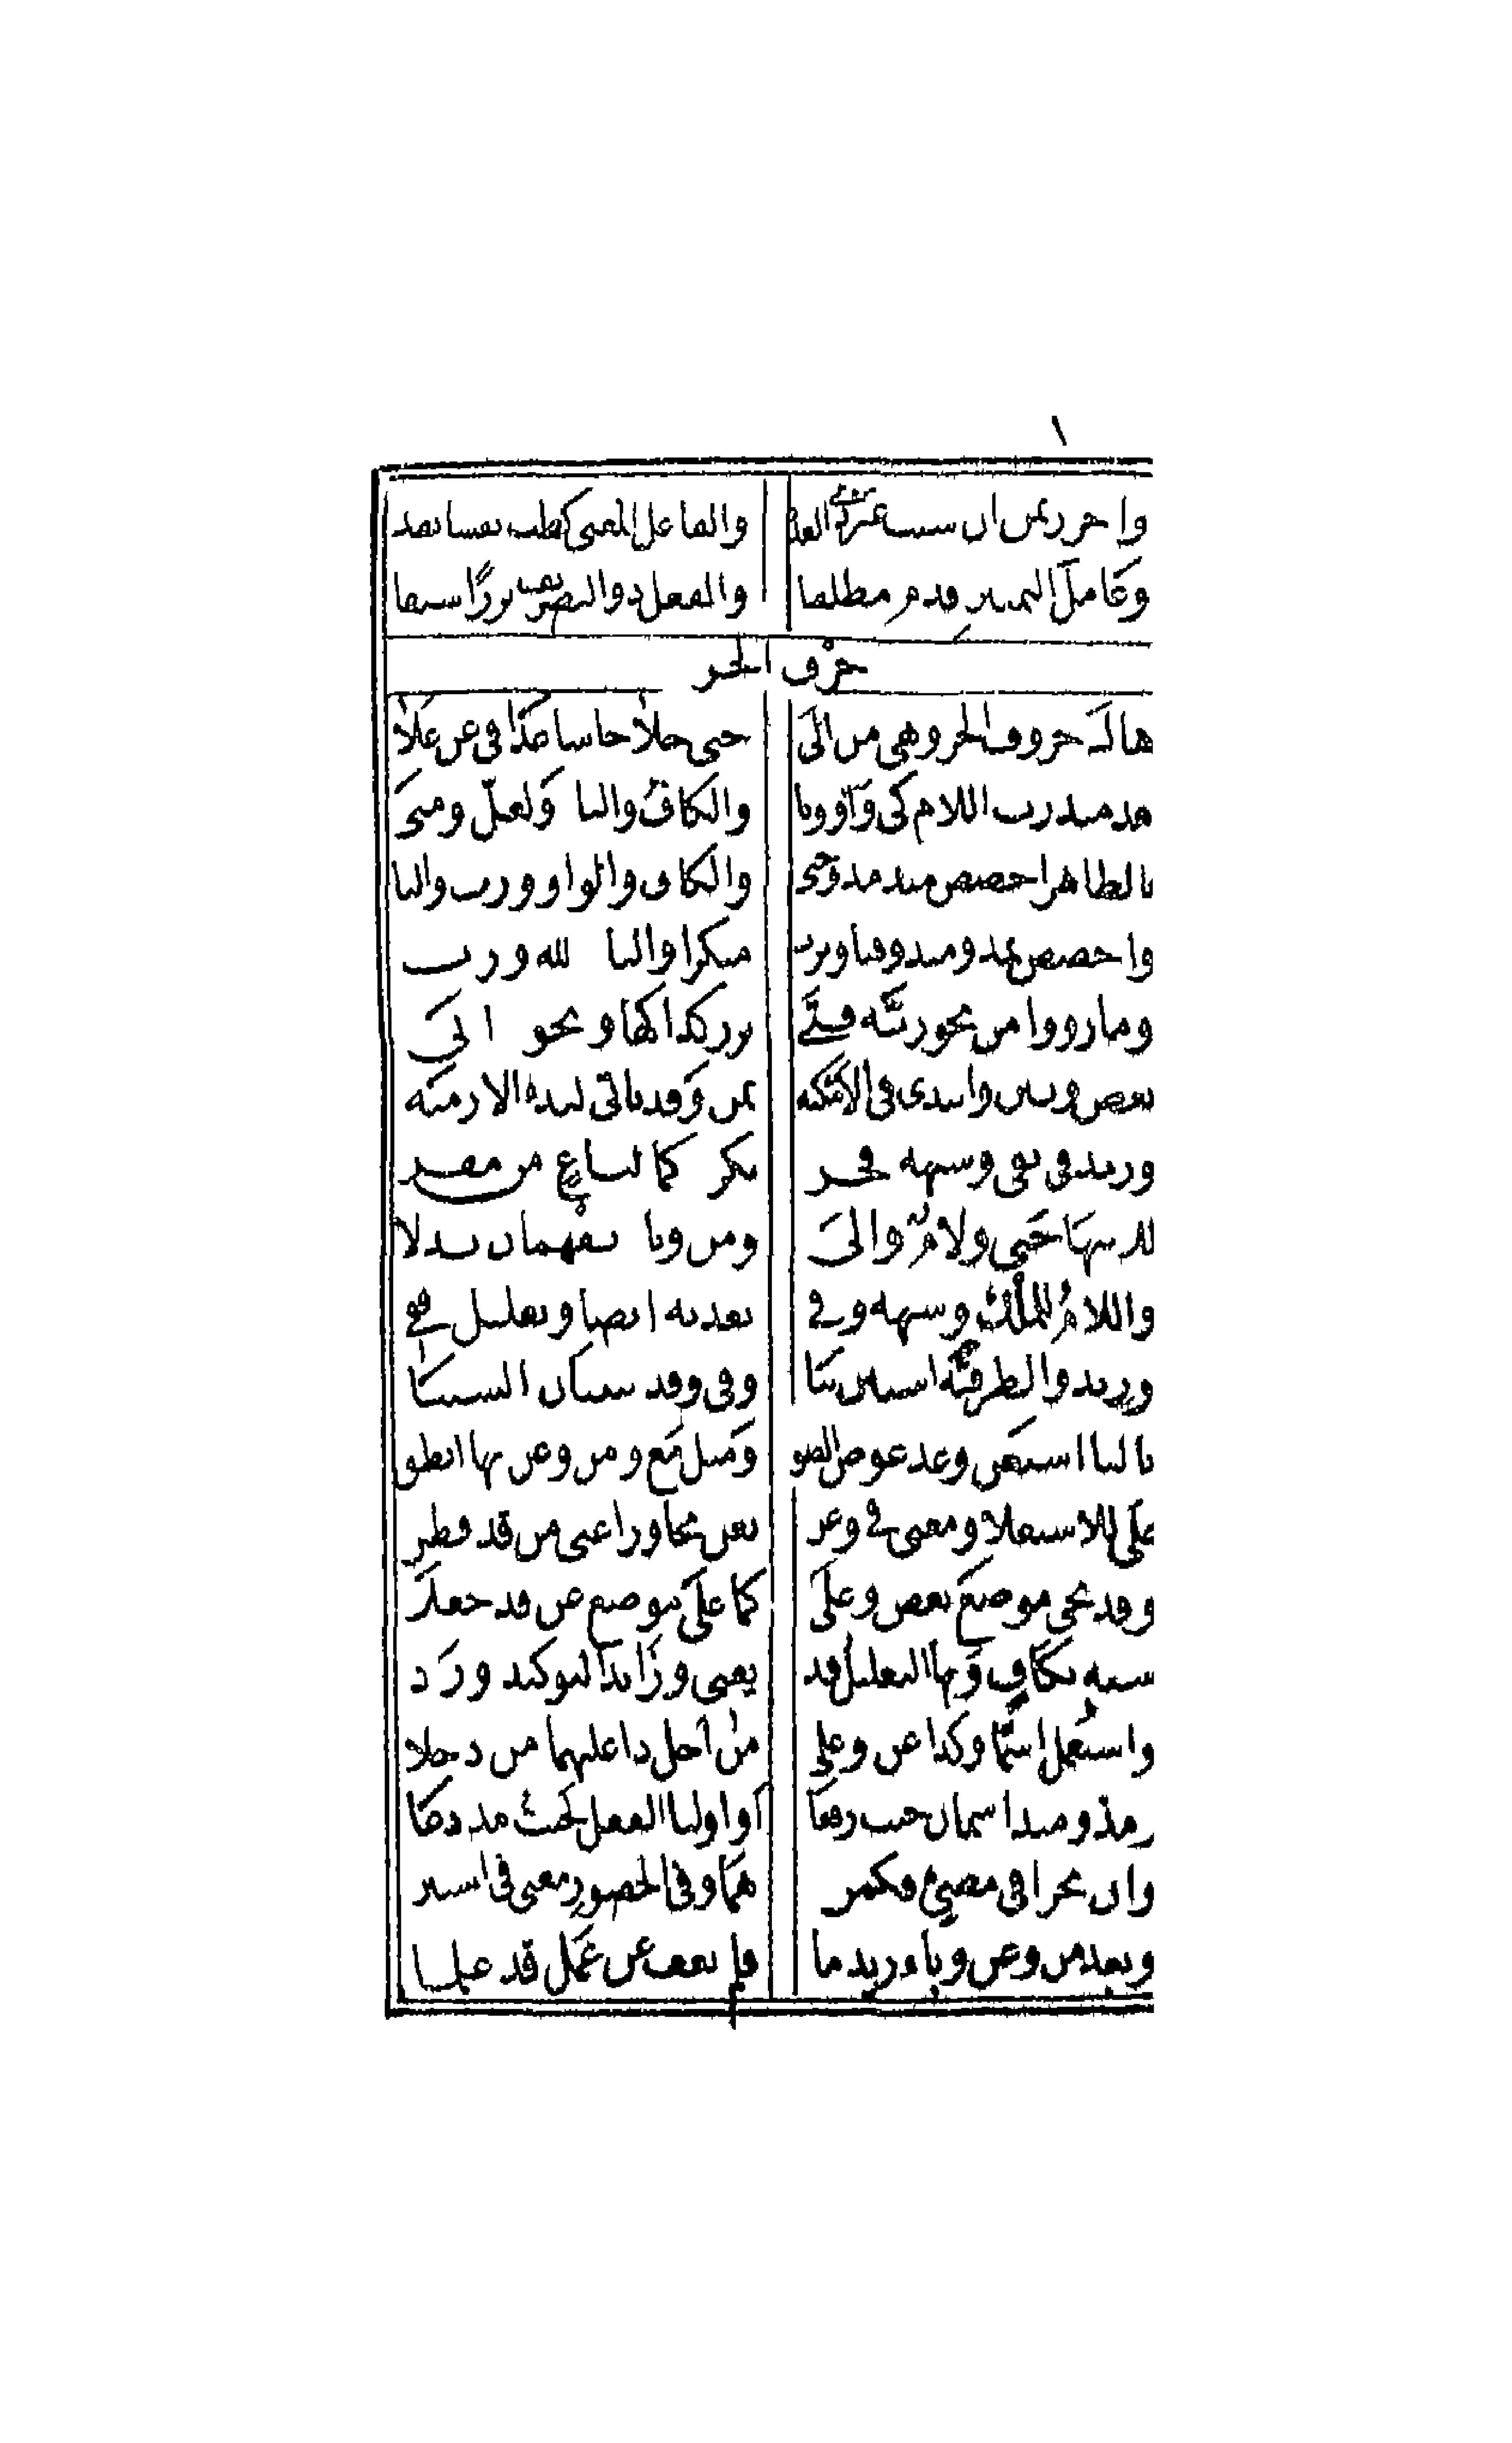 واجرر بمن ان شئت غير ذي العدد والفاعل المعنى كطب نفسا تفد
وعامل التمييز قدم مطلقا والفعل ذو التصريف نزرا سبقا
حرف الجر
هاك حروف الجر وهي من الى حتى خلا حاشا عدا في عن على
مذ منذ رب اللام كي واو وتا والكاف والبا ولعل ومتى
بالظاهر اخصص منذ مذ وحتى والكاف والواو ورب والتا
واخصص بمذ ومنذ وقتا وبرب منكرا والتا لله ورب
وما رووا من نحو ربه فتى نزر كذا كها ونحو اتى
بعض وبين وابتدي في الامكنه بمن وقد ياتي لبدء الازمنه
وزيد في نفي وشبهه فجر نكر كما لباغ من مفر
للانتها حتى ولام والى ومن وبا يفهمان بدلا
واللام للملك وشبهه وفي تعديه ايضا وتعليل قفي
وزيد والظرفية استبن ببا وفي وقد يبينان السببا
بالبا استعن وعد عوض الصق ومثل مع ومن وعن بها انطق
على للاستعلا ومعنى في وعن بعن تجاوزا عنى من قد فطن
وقد تجي موضع بعد وعلى كما على موضع عن قد جعلا
شبه بكاف وبها التعليل قد يعنى وزائدا لتوكيد ورد
واستعمل اسما وكذا عن وعلى من اجل ذا عليهما من دخلا
ومذ ومنذ اسمان حيث رفعا او اوليا الفعل كجئت مذ دعا
وان يجرا في مضي فكمن هما وفي الحضور معنى في استبن
وبعد من وعن وباء زيد ما فلم يعق عن عمل قد علما